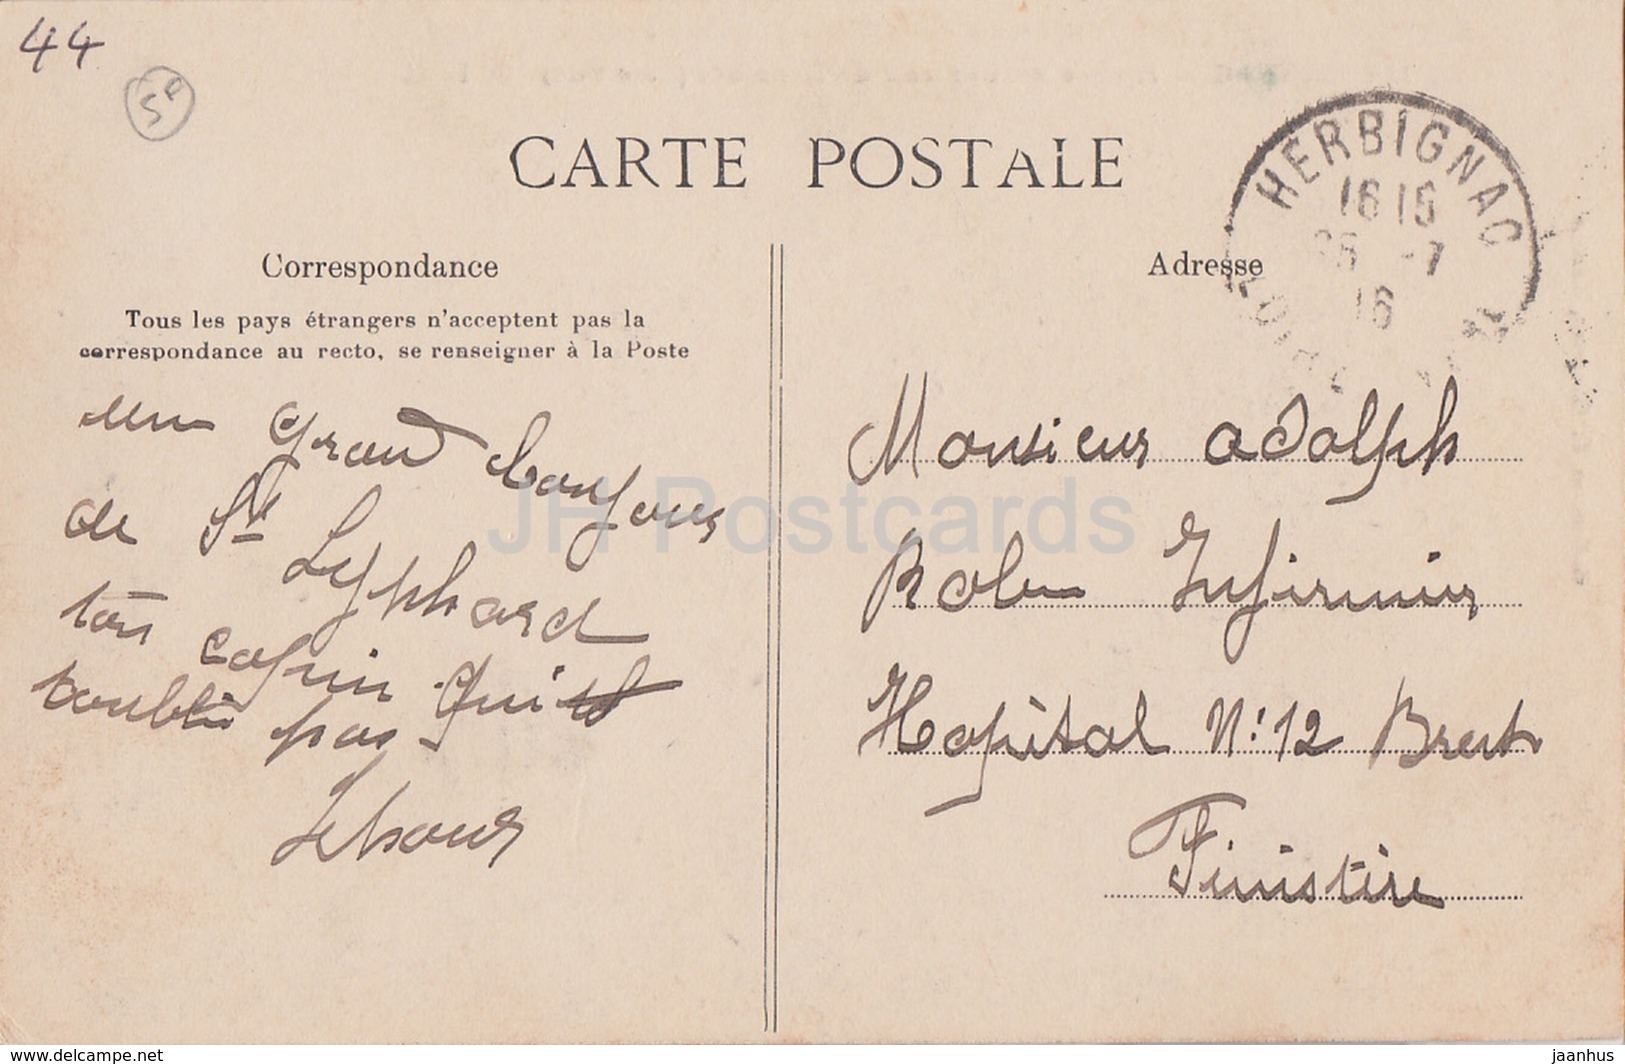 44
5F
CARTE POSTALE
HERBIGNAC
16 15
-7
16
Correspondance
Tous les pays étrangers n'acceptent pas la
correspondance au recto, se renseigner à la Poste
Adresse
un grand bonjour
de St Lyphard
ton copin qui
toublie pas
Monsieur adolph
Infirmier
Hopital N: 12 Brest
Finistère
JH Postcards
www.delcampe.net
jaanhus